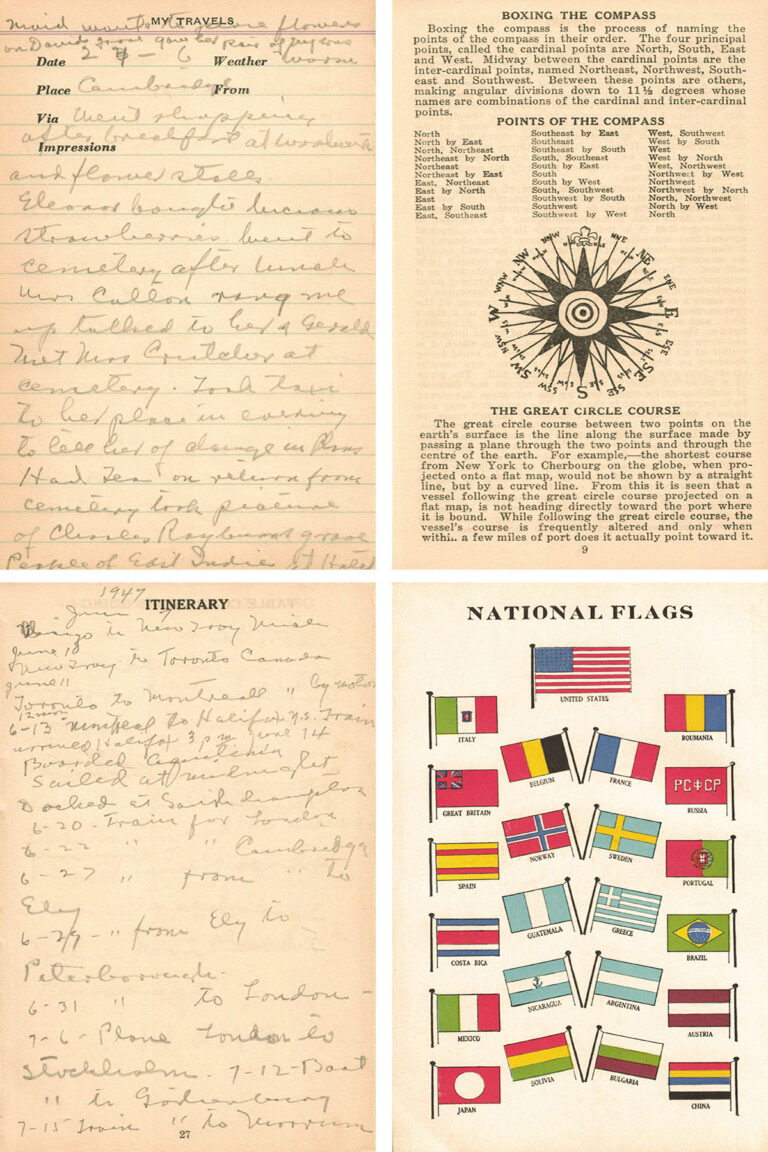 MY TRAVELS
Maid wants to gave flowers
on Davids grave gave her pair of
Date 2 - 6 Weather warm
Place Cambridge From
Via Went shopping
after breakfast at woolworth
Impressions
and flower stalls
Eleanor bought lucious
strawberries. Went to
cemetery after lunch
Mrs Cullon rang me
up talked to her & Gerald
Met Mrs Crutcher at
cemetery. Took taxi
to her place in evening
to tell her of change in plans
Had Tea on return from
cemetery took picture
of Charles Rayburns grave
People of East Indies at Hotel
BOXING THE COMPASS
Boxing the compass is the process of naming the
points of the compass in their order. The four principal
points, called the cardinal points are North, South, East
and West. Midway between the cardinal points are the
inter-cardinal points, named Northeast, Northwest, South-
east and Southwest. Between these points are others,
making angular divisions down to 11½ degrees whose
names are combinations of the cardinal and inter-cardinal
points.
POINTS OF THE COMPASS
North Southeast by East West, Southwest
North by East Southeast West by South
North, Northeast Southeast by South West
Northeast by North South, Southeast West by North
Northeast South by East West, Northwest
Northeast by East South Northwest by West
East, Northeast South by West Northwest
East by North South, Southwest Northwest by North
East Southwest by South North, Northwest
East by South Southwest North by West
East, Southeast Southwest by West North
NNW NNE
NW NE
WNW ENE
W E
WSW ESE
SW SE
SSW SSE
S
THE GREAT CIRCLE COURSE
The great circle course between two points on the
earth's surface is the line along the surface made by
passing a plane through the two points and through the
centre of the earth. For example,—the shortest course
from New York to Cherbourg on the globe, when pro-
jected onto a flat map, would not be shown by a straight
line, but by a curved line. From this it is seen that a
vessel following the great circle course projected on a
flat map, is not heading directly toward the port where
it is bound. While following the great circle course, the
vessel's course is frequently altered and only when
withi.. a few miles of port does it actually point toward it.
9
1947
ITINERARY
June 7
to New Troy Mich
June 10
New Troy to Toronto Canada
June 11
Toronto to Montreall " by motor
12 noon
6-13 Montreal to Halifax N.S. Train
arrived Halifax 3 p m June 14
Boarded Aquitania
Sailed at midnight
Docked at Southhampton
6-20 - Train for London
6-22 " " Cambridge
6-27 " from " to
Ely
6-29 - " from Ely to
Peterborough -
6-31 " to London -
7-6 - Plane London to
Stockholm. 7-12-Boat
" to Gothenburg
7-15 Train " to
27
NATIONAL FLAGS
UNITED STATES
ITALY
ROUMANIA
BELGIUM
FRANCE
GREAT BRITAIN
РСФСР
RUSSIA
NORWAY
SWEDEN
SPAIN
PORTUGAL
GUATEMALA
GREECE
COSTA RICA
BRAZIL
NICARAGUA
ARGENTINA
MEXICO
AUSTRIA
BOLIVIA
BULGARIA
JAPAN
CHINA